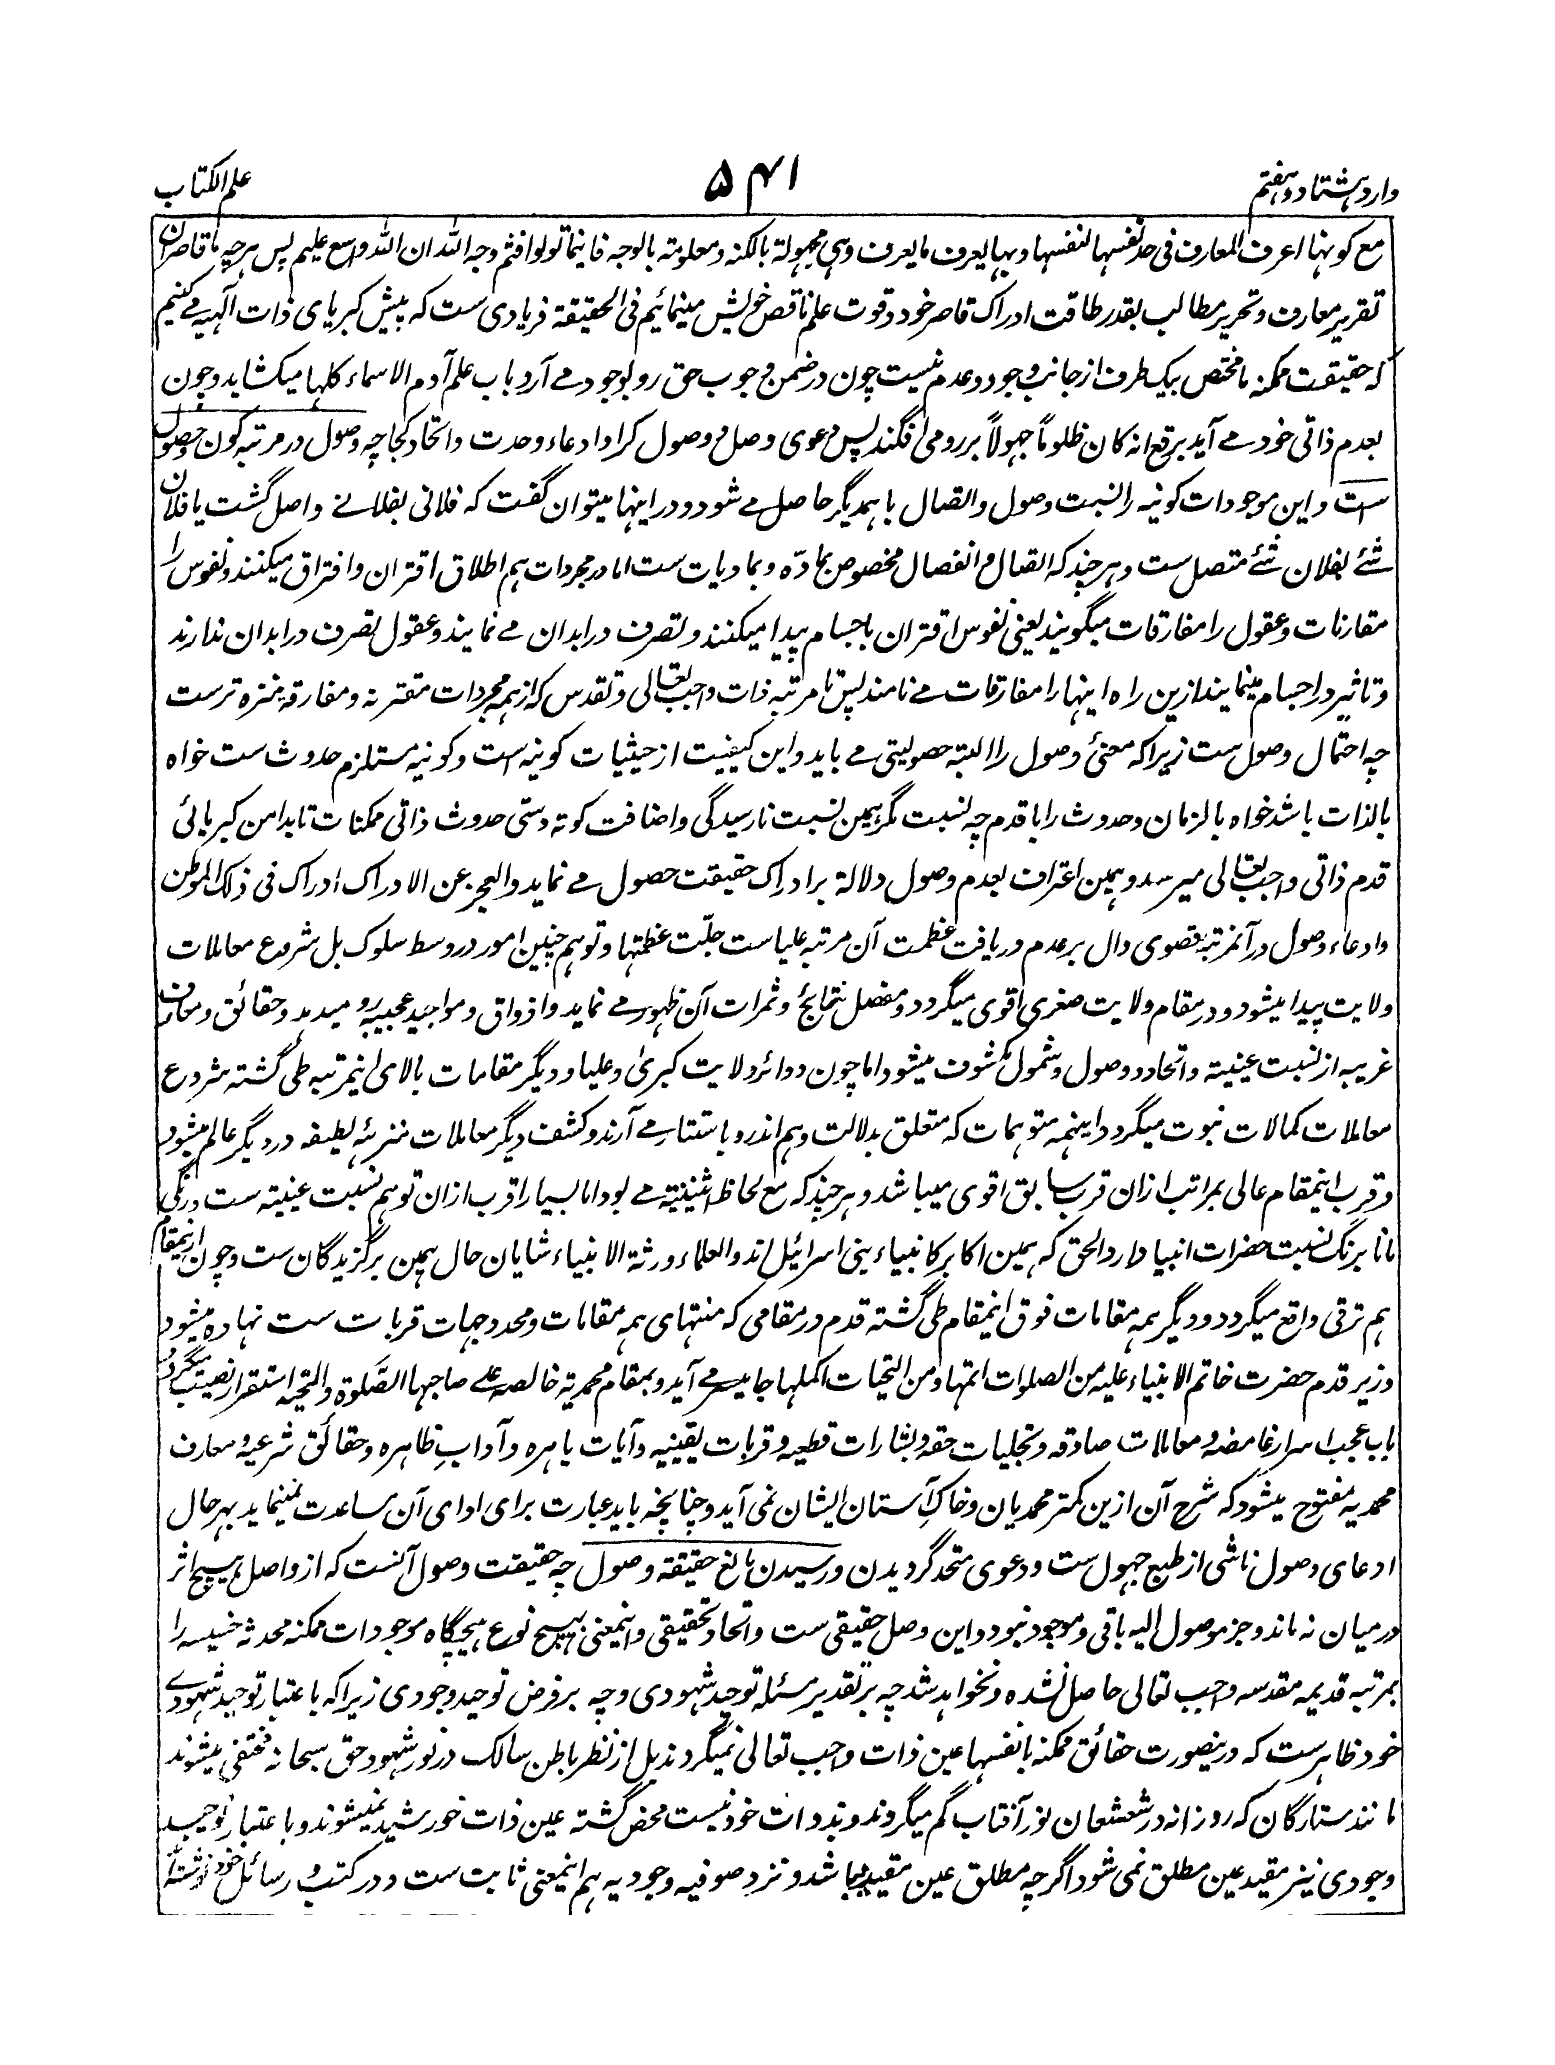 وارد هشتاد و هفتم
۵۴۱
علم الکتاب
مع کونها اعرف المعارف فی حد نفسها لنفسها و بها یعرف ما یعرف وهی مجهولة بالکنه و معلومة بالوجه فاینما تولوا فثم وجه الله ان الله واسع علیم پس هرچه ما قاصران
تقریر معارف و تحریر مطالب بقدر طاقت ادراک قاصر خود و قوت علم ناقص خویش مینمائیم فی الحقیقة فریادی ست که پیش کبریای ذات آلهیه مے کنیم
که حقیقت ممکنه ما مختص بیک طرف از جانب وجود و عدم نیست چون در ضمن وجوب حق رو بوجود مے آرد باب علم آدم الاسماء کلها میکشاید و چون
بعدم ذاتی خود مے آید برقع انه کان ظلوماً جهولاً بر رو می افگند پس دعوی وصل و وصول کرا و ادعاء وحدت و اتحاد کجا چه وصول در مرتبه کون و حصول
است و این موجودات کونیه را نسبت وصول و اتصال با همدیگر حاصل مے شود و در اینها میتوان گفت که فلانی بفلانے واصل گشت یا فلان
شئے بفلان شئے متصل ست و هر چند که اتصال و انفصال مخصوص بماده و بمادیات ست اما در مجردات هم اطلاق اقتران و افتراق میکنند و نفوس را
مقارنات و عقول را مفارقات میگویند یعنی نفوس اقتران باجسام پیدا میکنند و تصرف در ابدان مے نمایند و عقول تصرف در ابدان ندارند
و تاثیر در اجسام مینمایند ازین راه اینها را مفارقات مے نامند پس تا مرتبه ذات واجب تعالی و تقدس که از همه مجردات مقترنه و مفارقه منزه ترست
چه احتمال وصول ست زیرا که معنیٔ وصول را البته حصولیتی مے باید و این کیفیت از حیثیات کونیه است و کونیه مستلزم حدوث ست خواه
بالذات باشد خواه بالزمان و حدوث را با قدم چه نسبت مگر همین نسبت نارسیدگی و اضافت کوته دستی حدوث ذاتی ممکنات تا بدامن کبریائی
قدم ذاتی واجب تعالی میرسد و همین اعتراف بعدم وصول دلالة بر ادراک حقیقت حصول مے نماید والعجز عن الادراک ادراک فی ذلک الموطن
و ادعاء وصول در آنمرتبه قصوی دال بر عدم دریافت عظمت آن مرتبه علیاست جلّت عظمتها و توهم چنین امور در وسط سلوک بل شروع معاملات
ولایت پیدا میشود و در مقام ولایت صغری اقوی میگردد و مفصل نتائج و ثمرات آن ظهور مے نماید و اذواق و مواجید عجیبه رو میدهد و حقائق و معارف
غریبه از نسبت عینیة و اتحاد و وصول و شمول مکشوف میشود اما چون دوائر ولایت کبریٰ و علیا و دیگر مقامات بالای اینمرتبه طی گشته شروع
معاملات کمالات نبوت میگردد اینهمه متوهمات که متعلق بدلالت وهم اند رو باستتار مے آرند و کشف دیگر معاملات تنزیهیه لطیفه در دیگر عالم میشود
و قرب اینمقام عالی بمراتب ازان قرب سابق اقوی میباشد و هر چند که مع لحاظ اثنینیة مے بود اما بسیار اقرب ازان توهم نسبت عینیة ست و رنگی
مانا برنگ نسبت حضرات انبیا دارد الحق که همین اکابر کانبیاء بنی اسرائیل اند و العلماء ورثة الانبیاء شایان حال همین برگزیدگان ست و چون ازینمقام
هم ترقی واقع میگردد و دیگر همه مقامات فوق اینمقام طی گشته قدم در مقامی که منتهای همه مقامات و محدد جهات قربات ست نهاده میشود
و زیر قدم حضرت خاتم الانبیاء علیه من الصلوات اتمها و من التحیات اکملها جا میسر مے آید و بمقام محمدیة خالصه علے صاحبها الصّلوة والتحیه استقرار نصیب میگردد
باب عجب اسرار غامضه و معاملات صادقه و تجلیات حقه و بشارات قطعیه و قربات یقینیه و آیات باهره و آداب ظاهره و حقائق شرعیه و معارف
محمدیه مفتوح میشود که شرح آن ازین کمتر محمدیان و خاک آستان ایشان نمی آید و چنانچه باید عبارت برای ادای آن مساعدت نمینماید بهرحال
ادعای وصول ناشی از طبع جهول ست و دعوی متحد گردیدن و رسیدن مانع حقیقة وصول چه حقیقت وصول آنست که از واصل هیچ اثر
درمیان نه ماند و جز موصول الیه باقی و موجود نبود و این وصل حقیقی ست و اتحاد تحقیقی و اینمعنی بهیچ نوع هیچگاه موجودات ممکنه محدثه خسیسه را
بمرتبه قدیمه مقدسه واجب تعالی حاصل نشده و نخواهد شد چه بر تقدیر مسئله توحید شهودی و چه بر فرض توحید وجودی زیرا که باعتبار توحید شهودے
خود ظاهرست که درینصورت حقائق ممکنه بانفسها عین ذات واجب تعالی نمیگردند بل از نظر باطن سالک در نور شهود حق سبحانه مختفی میشوند
مانند ستارگان که روزانه در شعشعان نور آفتاب گم میگردند و بذوات خود نیست محض گشته عین ذات خورشید نمیشوند و باعتبار توحید
وجودی نیز مقید عین مطلق نمی شود اگرچه مطلق عین مقید میباشد و نزد صوفیه وجودیه هم اینمعنی ثابت ست و در کتب و رسائل خود نوشته اند